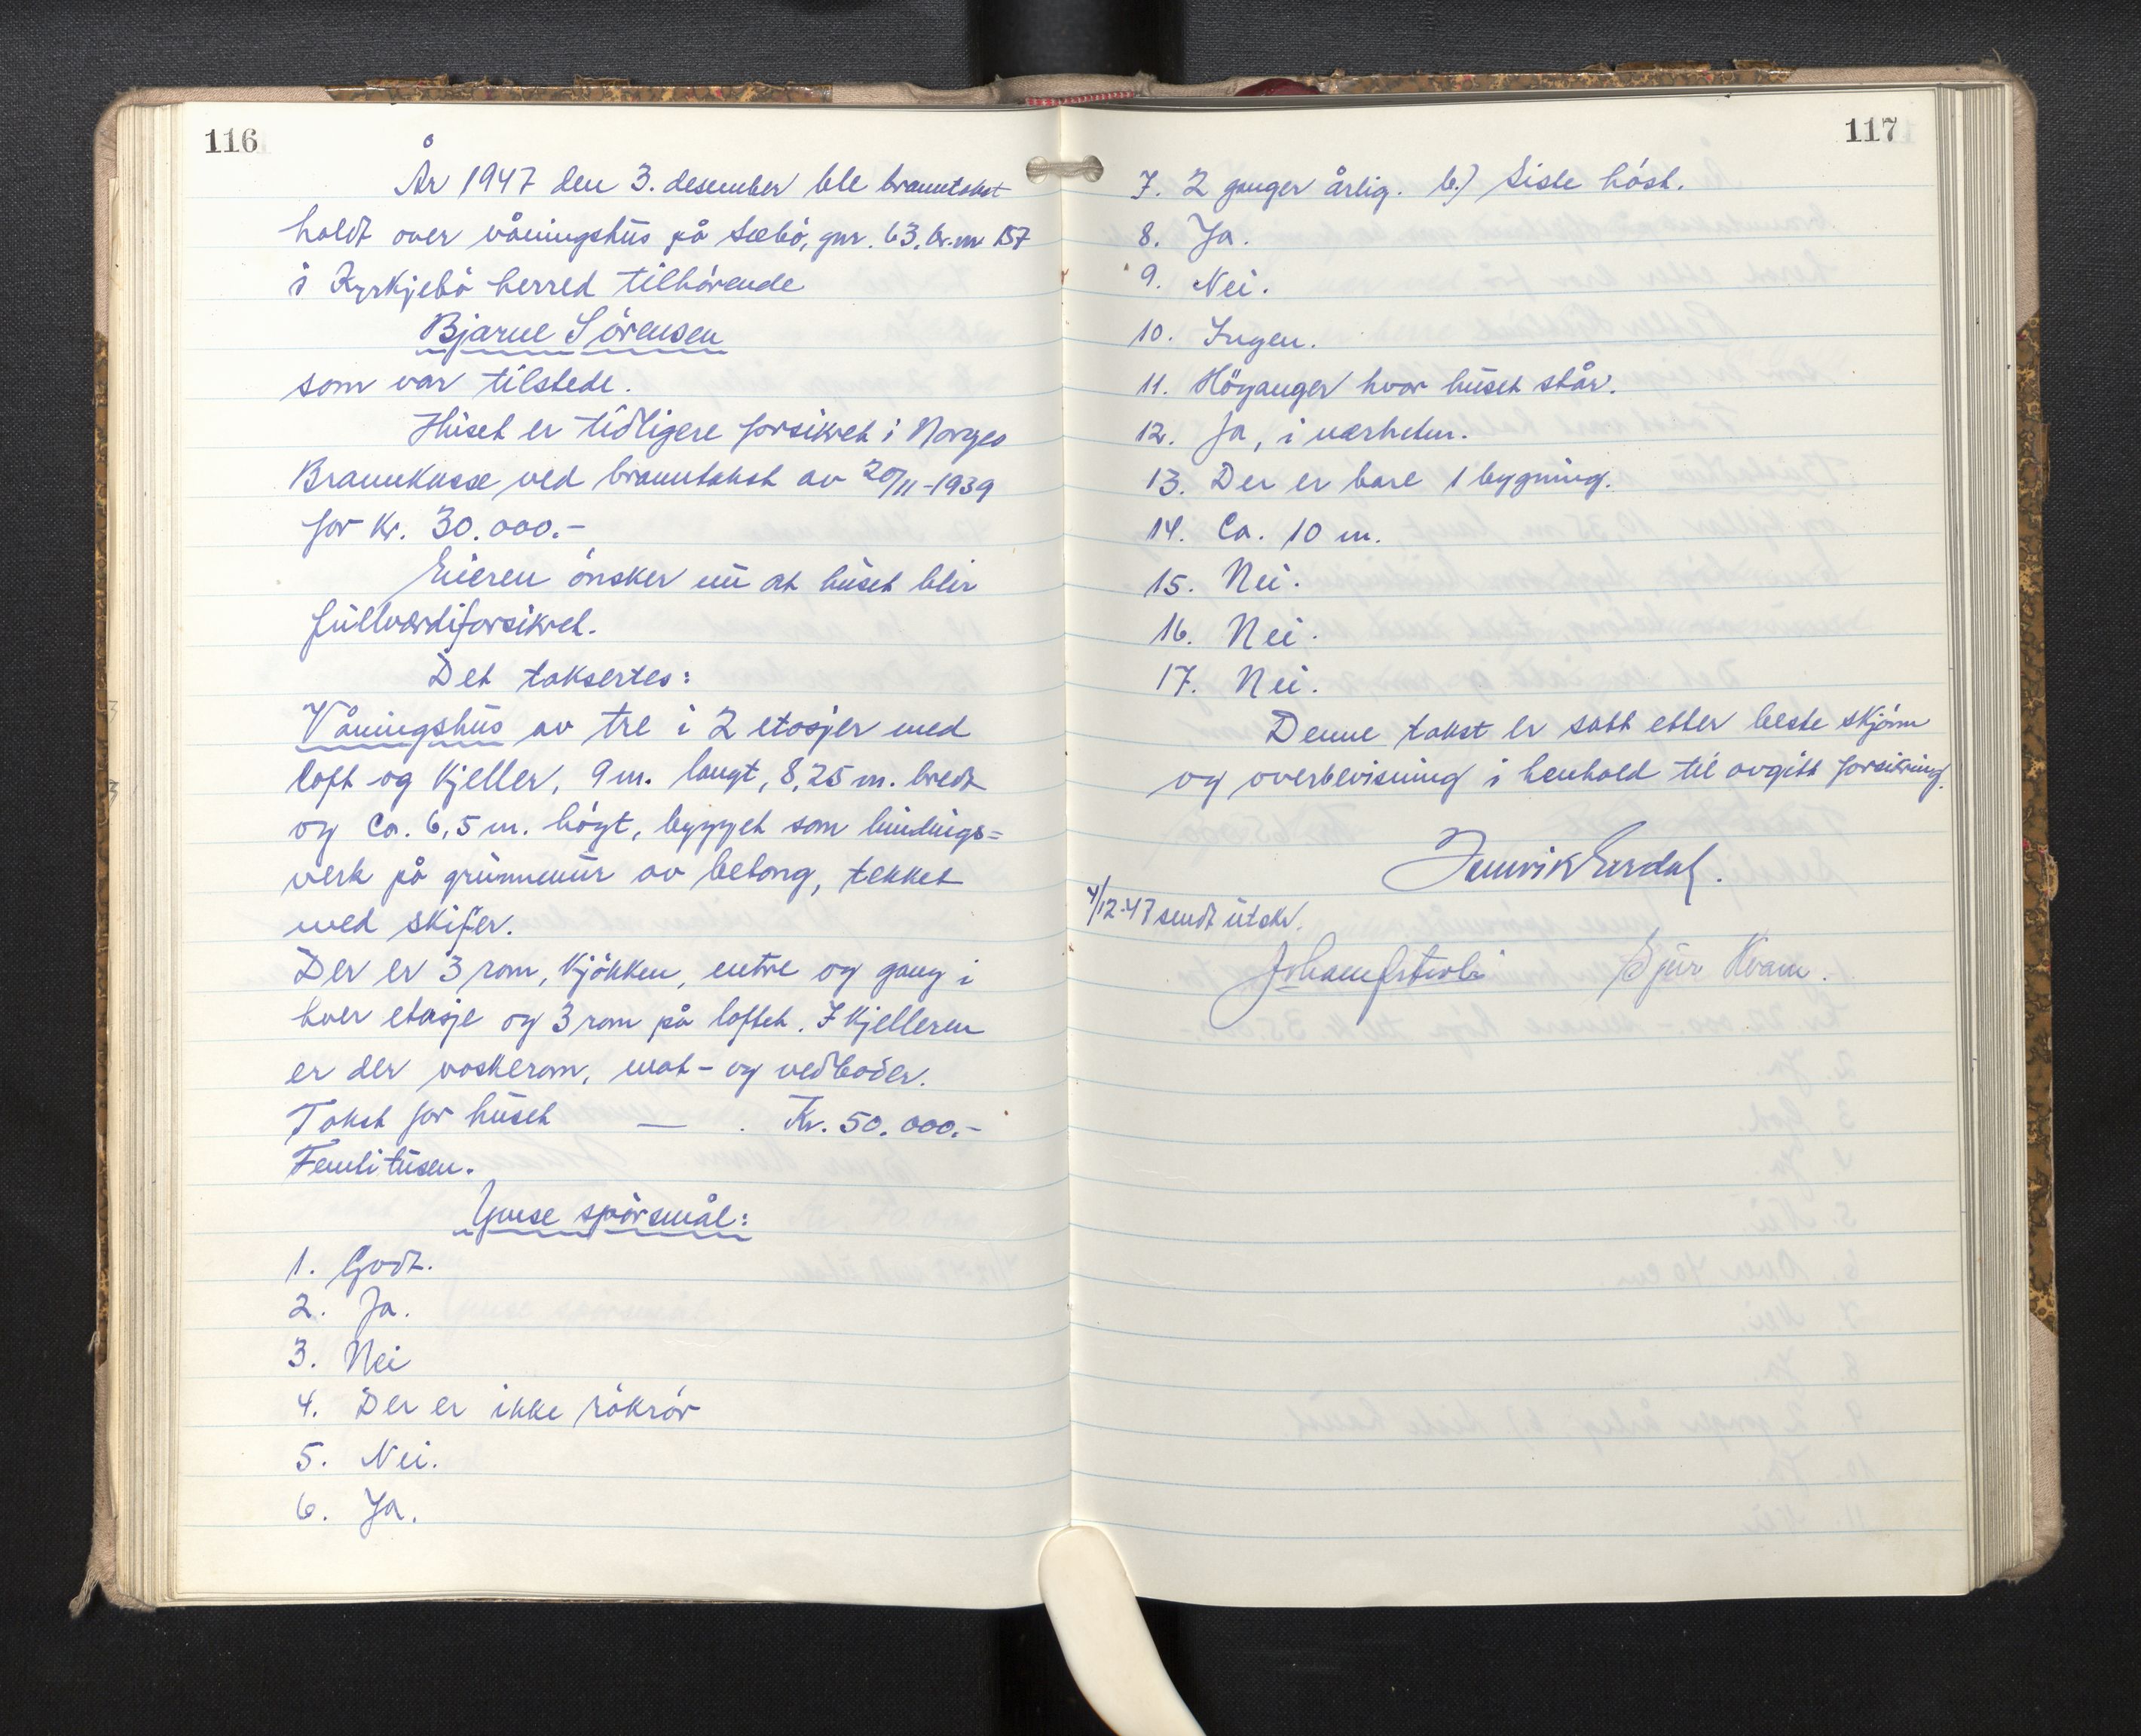 116
År 1947 den 3. desember ble branntakst
holdt over våningshus på Sæbö, gnr. 63, br.nr 157
i Kyrkjebö herred tilhörende
Bjarne Sörensen
som var tilstede.
Huset er tidligere forsikret i Norges
Brannkasse ved branntakst av 20/11-1939
for kr. 30.000.-
Eieren önsker nu at huset blir
fullverdiforsikret.
Det taksertes:
Våningshus av tre i 2 etasjer med
loft og kjeller, 9 m. langt, 8,25 m. bredt
og ca. 6,5 m. höyt, bygget som bindings=
verk på grunnmur av betong, tekket
med skifer.
Der er 3 rom, kjökken, entre og gang i
hver etasje og 3 rom på loftet. I kjelleren
er der vaskerom, mat- og vedboder.
Takst for huset — . Kr. 50.000.-
Femtitusen.
Ymse spörsmål:
1. Godt.
2. Ja.
3. Nei
4. Der er ikke rökrör
5. Nei.
6. Ja.
117
7. 2 ganger årlig. b.) Siste höst.
8. Ja.
9. Nei.
10. Ingen.
11. Höyanger hvor huset står.
12. Ja, i nærheten.
13. Der er bare 1 bygning.
14. Ca. 10 m.
15. Nei.
16. Nei.
17. Nei.
Denne takst er satt etter beste skjönn
og overbevisning i henhold til avgitt forsikring.
4/12-47 sendt utskr.
Sjur Kvam.